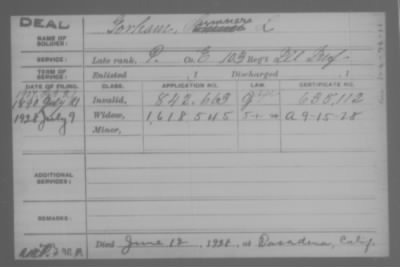 DEAL
NAME OF SOLDIER: Gorham,
SERVICE: Late rank, P. Co. E 103 Reg't Ill Inf.
TERM OF SERVICE: Enlisted , 1 Discharged , 1
DATE OF FILING. CLASS. APPLICATION NO. LAW. CERTIFICATE NO.
1890 July 21 Invalid, 842.663 635,112
1928 July 9 Widow, 1,618,545 5-1-20 A 9-15-28
Minor,
ADDITIONAL SERVICES:
REMARKS:
Died June 12, 1928, at Pasadena, Calif.